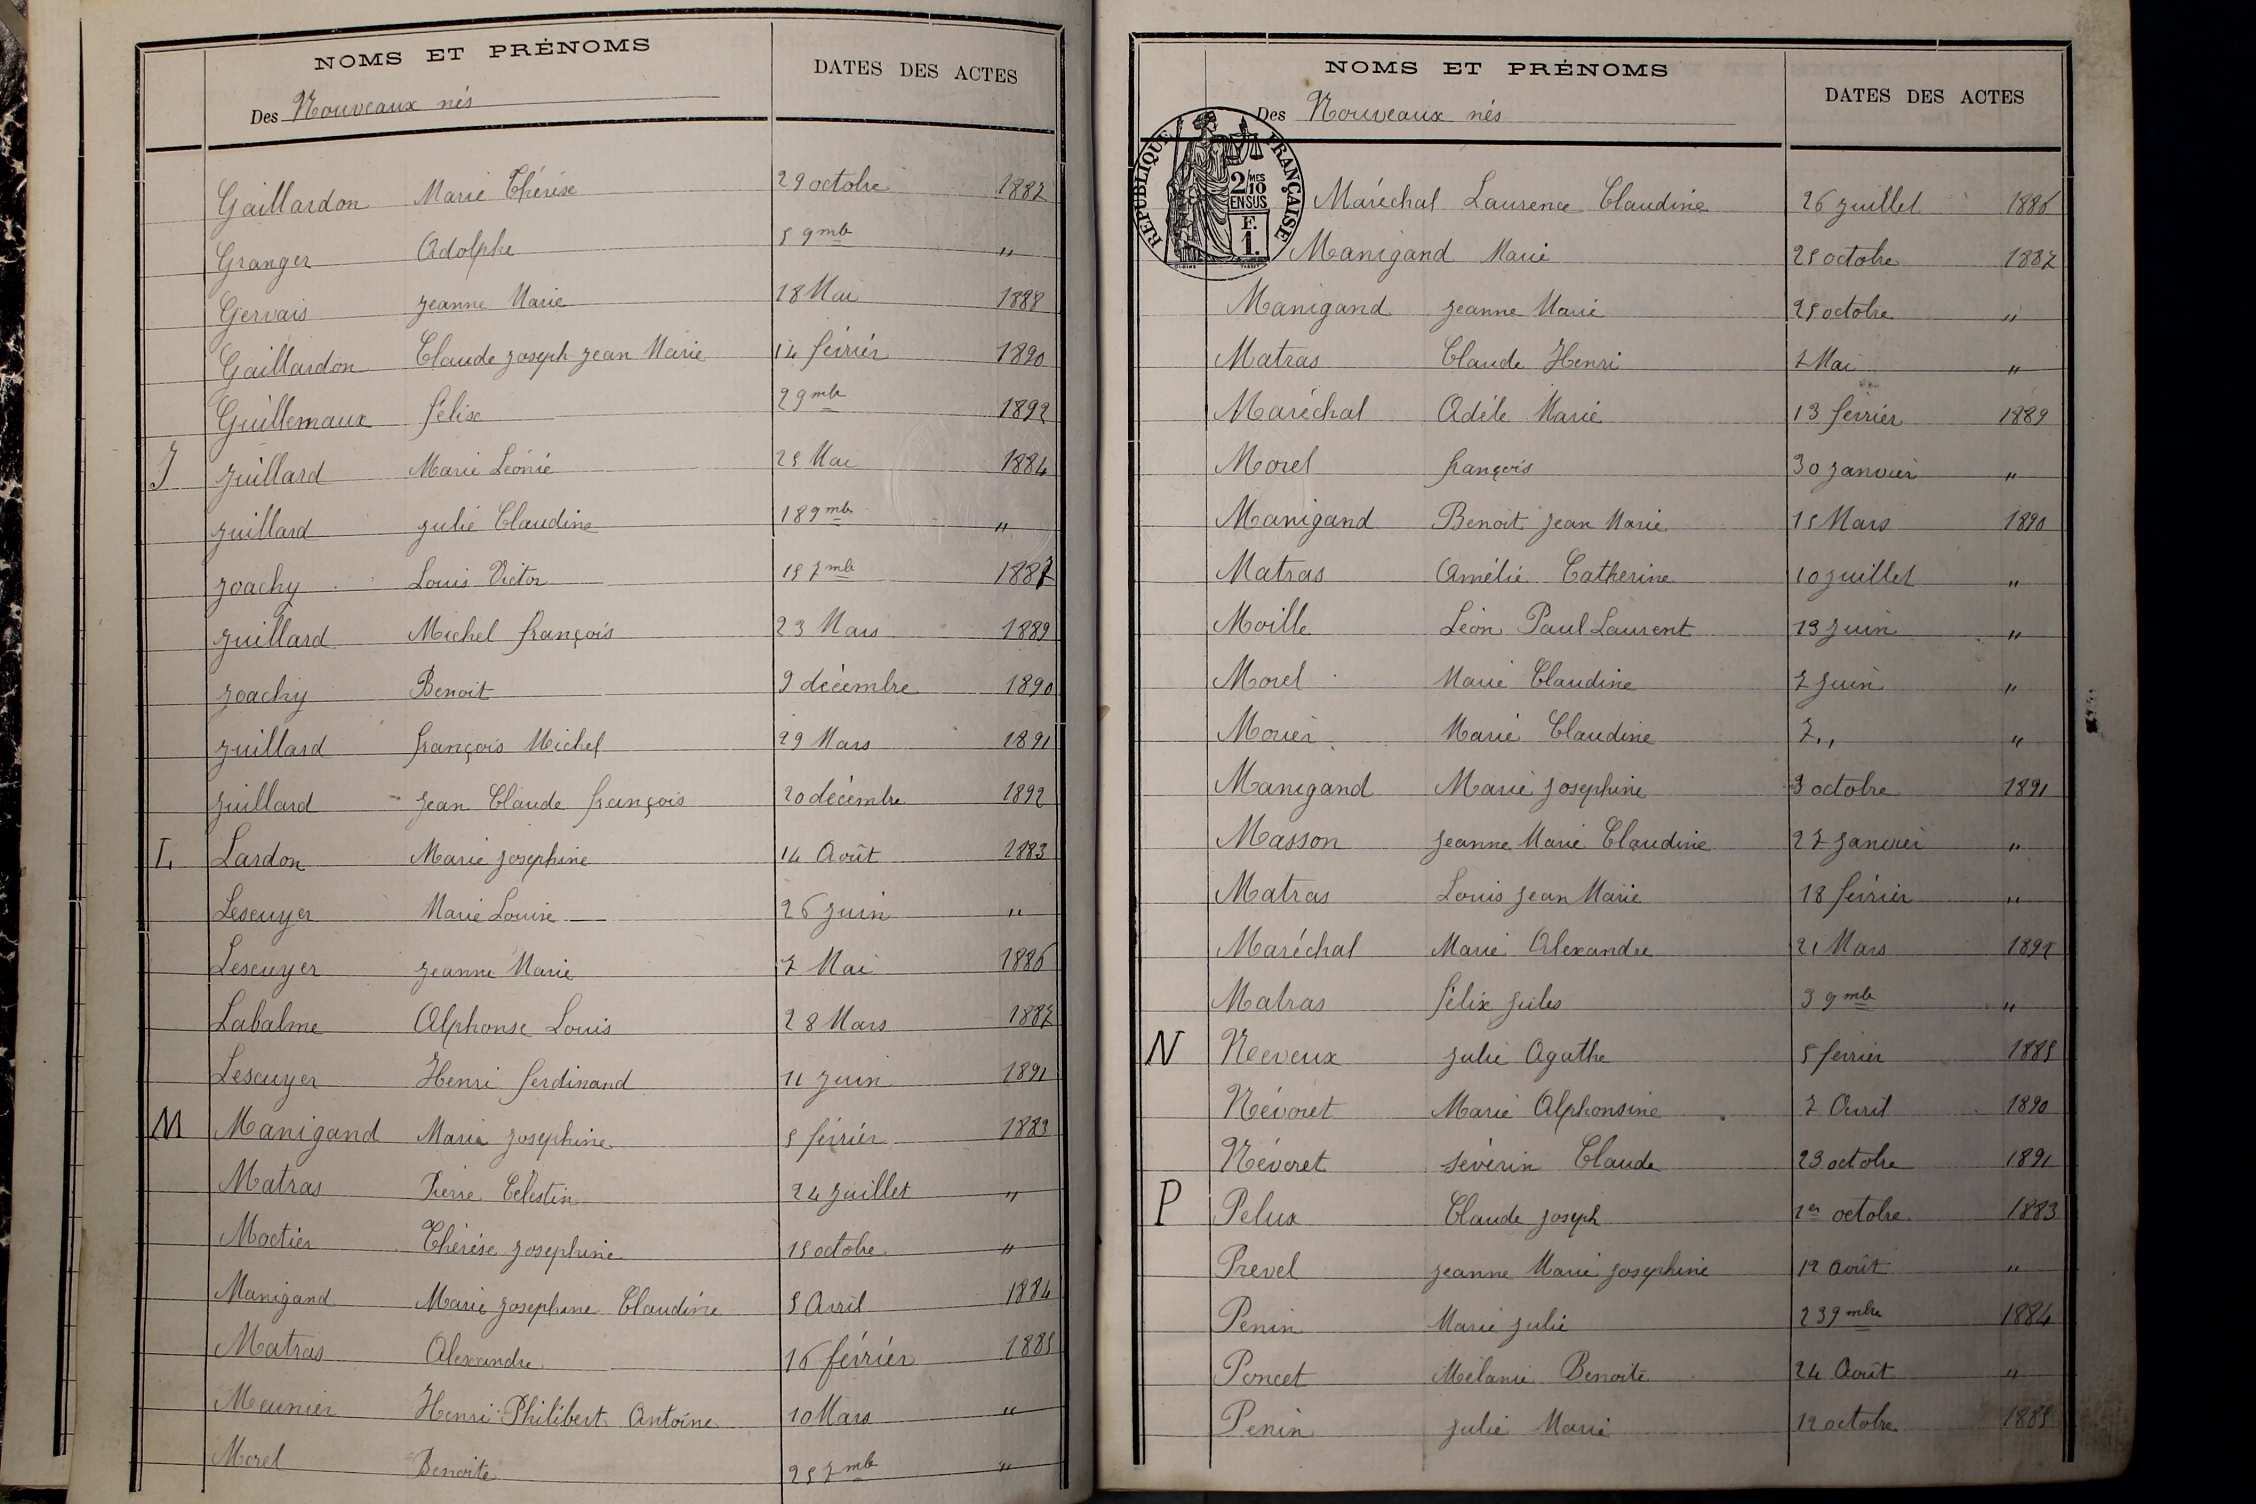 NOMS ET PRÉNOMS
DATES DES ACTES
Des Nouveaux nés
Gaillardon Marie Thérèse 29 octobre 1887
Granger Adolphe 5 9mbre "
Gervais Jeanne Marie 18 Mai 1888
Gaillardon Claude Joseph Jean Marie 14 février 1890
Guillemaux félix 2 9mbre 1892
J Juillard Marie Léonie 25 Mai 1884
Juillard Julie Claudine 18 9mbre "
Joachy Louis Victor 15 7mbre 1887
Juillard Michel françois 23 Mars 1889
Joachy Benoit 9 décembre 1890
Juillard françois Michel 29 Mars 1891
Juillard Jean Claude françois 20 décembre 1892
L Lardon Marie Josephine 14 Août 1883
Lescuyer Marie Louise 26 Juin "
Lescuyer Jeanne Marie 7 Mai 1886
Labalme Alphonse Louis 28 Mars 1887
Lescuyer Henri ferdinand 11 Juin 1891
M Manigand Marie Josephine 5 février 1883
Matras Pierre Célestin 24 Juillet "
Moctier Thérèse Josephine 15 octobre "
Manigand Marie Josephine Claudine 5 Avril 1884
Matras Alexandre 16 février 1885
Meunier Henri Philibert Antoine 10 Mars "
Morel Benoite 25 7mbre "
NOMS ET PRÉNOMS
DATES DES ACTES
Des Nouveaux nés
RÉPUBLIQUE FRANÇAISE
2/10 MES
EN SUS
F.
1.
Maréchal Laurence Claudine 26 Juillet 1886
Manigand Marie 25 octobre 1887
Manigand Jeanne Marie 25 octobre "
Matras Claude Henri 7 Mai "
Maréchal Adèle Marie 13 février 1889
Morel françois 30 Janvier "
Manigand Benoit Jean Marie 15 Mars 1890
Matras Amélie Catherine 10 Juillet "
Moille Léon Paul Laurent 13 Juin "
Morel Marie Claudine 7 Juin "
Morier Marie Claudine 7 " "
Manigand Marie Josephine 3 octobre 1891
Masson Jeanne Marie Claudine 27 Janvier "
Matras Louis Jean Marie 18 février "
Maréchal Marie Alexandre 21 Mars 1892
Matras félix Jules 3 9mbre "
N Neveux Julie Agathe 5 fevrier 1885
Névoret Marie Alphonsine 7 Avril 1890
Névoret Sévérin Claude 23 octobre 1891
P Pelux Claude Joseph 1er octobre 1883
Prevel Jeanne Marie Josephine 12 Août "
Penin Marie Julie 23 9mbre 1884
Poncet Mélanie Benoite 24 Août "
Penin Julie Marie 12 octobre 1885